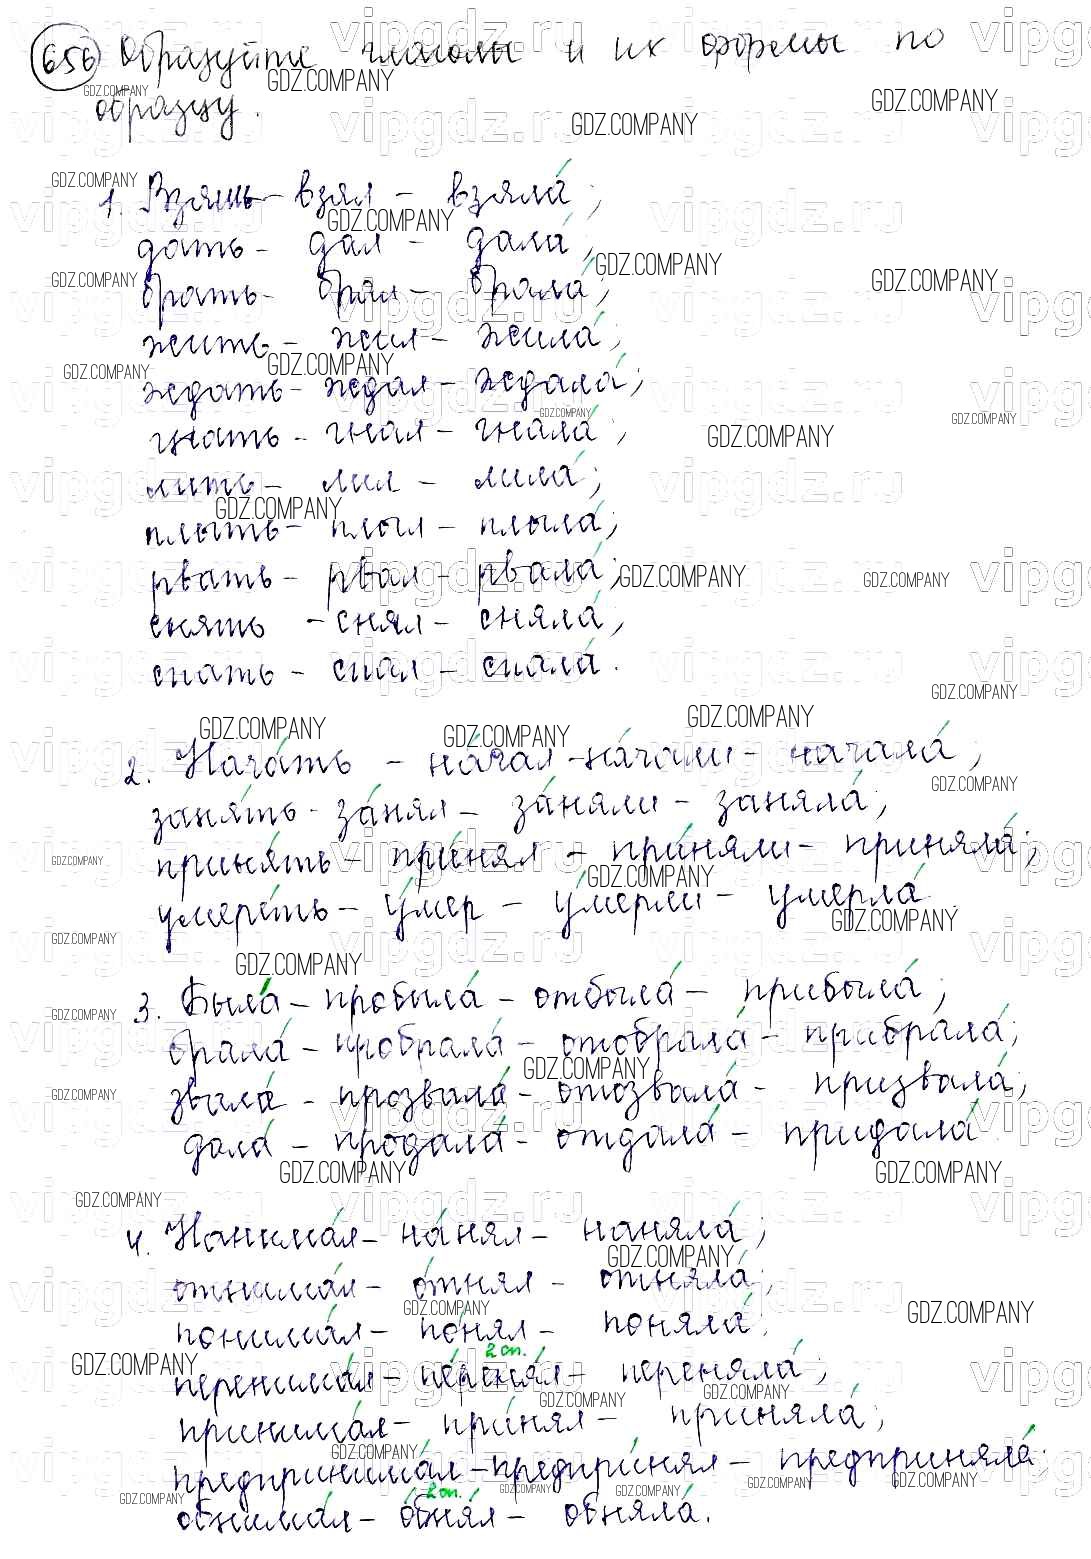 656 Образуйте глаголы и их формы по
образцу.
1. Взять - взял - взяла́;
дать - дал - дала́;
брать - брал - брала́;
жить - жил - жила́;
ждать - ждал - ждала́;
гнать - гнал - гнала́;
лить - лил - лила́;
плыть - плыл - плыла́;
рвать - рвал - рвала́;
снять - снял - сняла́;
спать - спал - спала́.
2. Нача́ть - на́чал - на́чали - начала́;
заня́ть - за́нял - за́няли - заняла́;
приня́ть - при́нял - при́няли - приняла́;
умере́ть - у́мер - у́мерли - умерла́.
3. Была́ - пробыла́ - отбыла́ - прибыла́;
брала́ - пробрала́ - отобрала́ - прибрала́;
звала́ - прозвала́ - отозвала́ - призвала́;
дала́ - продала́ - отдала́ - придала́
4. Нанима́л - на́нял - наняла́;
отнима́л - о́тнял - отняла́;
понима́л - по́нял - поняла́;
2 сп.
перенима́л - пе́реня́л - переняла́;
принима́л - при́нял - приняла́;
предпринима́л - предпри́нял - предприняла́;
2 сп.
обнима́л - о́бня́л - обняла́.
GDZ.COMPANY
vipgdz.ru